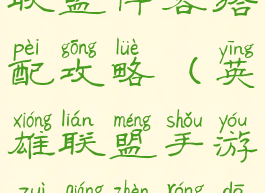 联盟阵容搭
pèi gōng lüè yīng
配攻略（英
xióng lián méng shǒu yóu
雄联盟手游
zuì qiáng zhèn róng dā